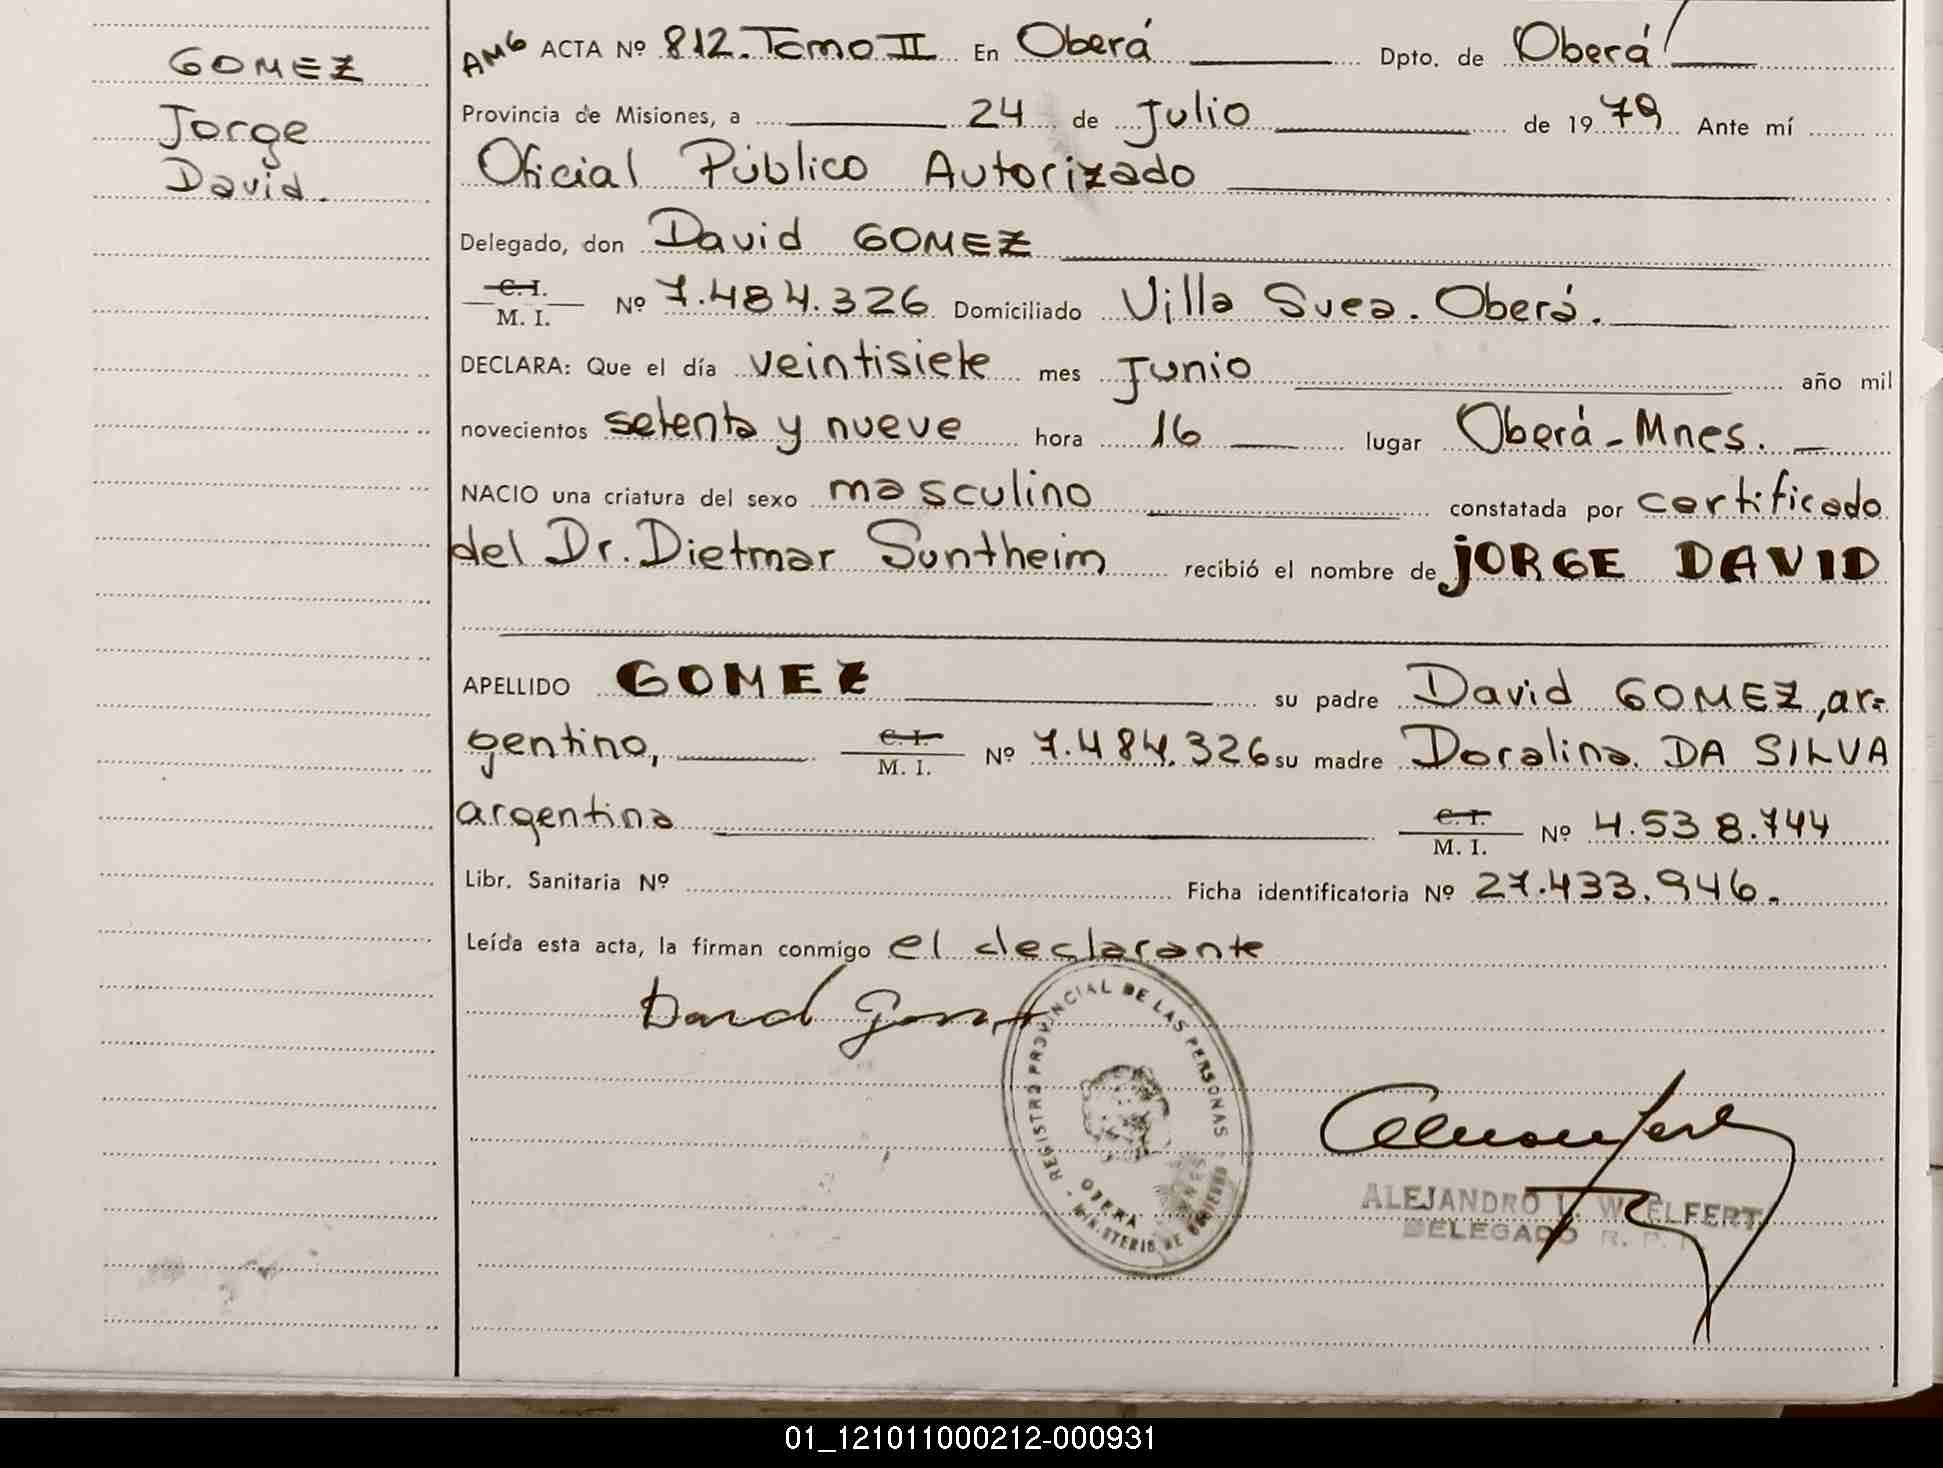 GOMEZ
Jorge
David.
AMG ACTA Nº 812. Tomo II En Oberá Dpto. de Oberá
Provincia de Misiones, a 24 de Julio de 1979 Ante mí
Oficial Público Autorizado
Delegado, don David GOMEZ
C. I.
M. I. Nº 7.484.326 Domiciliado Villa Svea. Oberá.
DECLARA: Que el día veintisiete mes Junio año mil
novecientos setenta y nueve hora 16 lugar Oberá - Mnes.
NACIO una criatura del sexo masculino constatada por certificado
del Dr. Dietmar Suntheim recibió el nombre de JORGE DAVID
APELLIDO GOMEZ su padre David GOMEZ, ar=
gentino, C. I.
M. I. Nº 7.484.326 su madre Doralina DA SILVA
argentina C. I.
M. I. Nº 4.538.744
Libr. Sanitaria Nº Ficha identificatoria Nº 27.433.946.
Leída esta acta, la firman conmigo el declarante
REGISTRO PROVINCIAL DE LAS PERSONAS
OBERA
MINISTERIO DE GOBIERNO
ALEJANDRO L. WOELFERT
DELEGADO R. P. P.
01_121011000212-000931